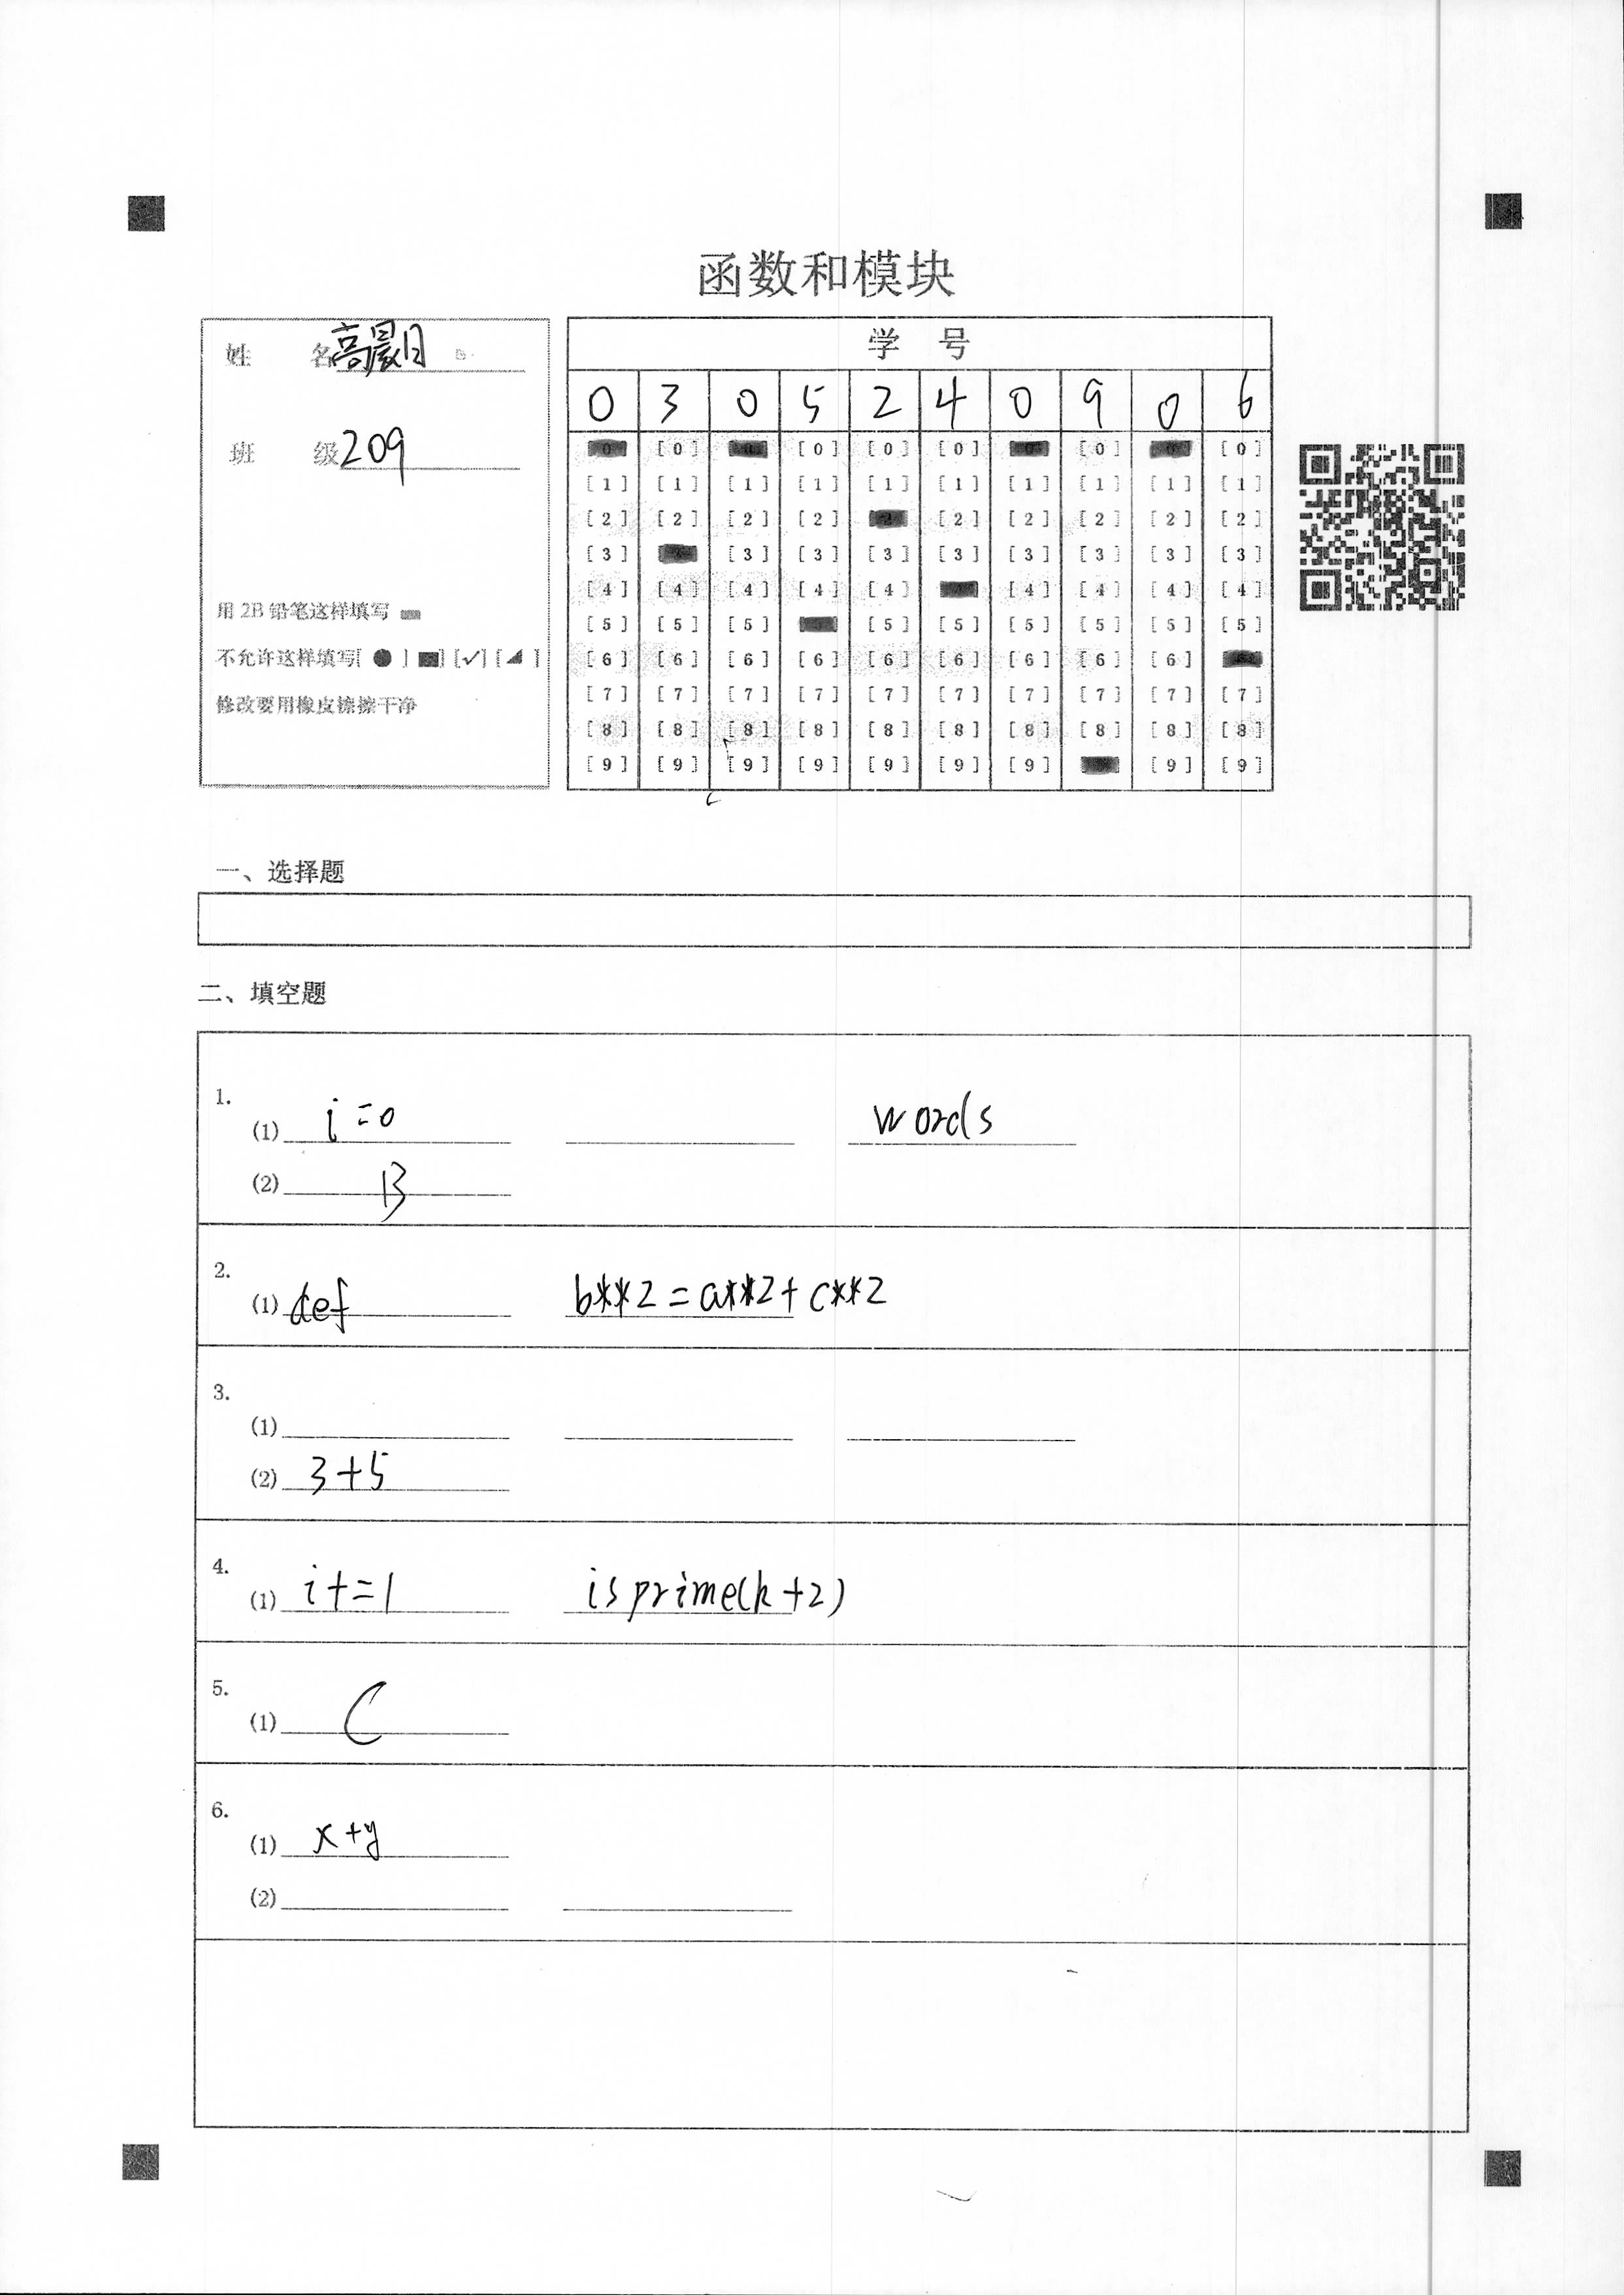 函数和模块
姓 名 高晨月
班 级 209
用 2B 铅笔这样填写
不允许这样填写[ ● ] [■] [✓] [◢ ]
修改要用橡皮擦擦干净
学 号
0 3 0 5 2 4 0 9 0 6
[0] [0] [0] [0] [0] [0] [0] [0] [0] [0]
[1] [1] [1] [1] [1] [1] [1] [1] [1] [1]
[2] [2] [2] [2] [2] [2] [2] [2] [2]
[3] [3] [3] [3] [3] [3] [3] [3] [3]
[4] [4] [4] [4] [4] [4] [4] [4] [4]
[5] [5] [5] [5] [5] [5] [5] [5] [5]
[6] [6] [6] [6] [6] [6] [6] [6] [6]
[7] [7] [7] [7] [7] [7] [7] [7] [7] [7]
[8] [8] [8] [8] [8] [8] [8] [8] [8] [8]
[9] [9] [9] [9] [9] [9] [9] [9] [9]
一、选择题
二、填空题
1.
(1) i=0 words
(2) B
2.
(1) def b**2=a**2+c**2
3.
(1)
(2) 3+5
4.
(1) i+=1 isprime(k+2)
5.
(1) C
6.
(1) x+y
(2)